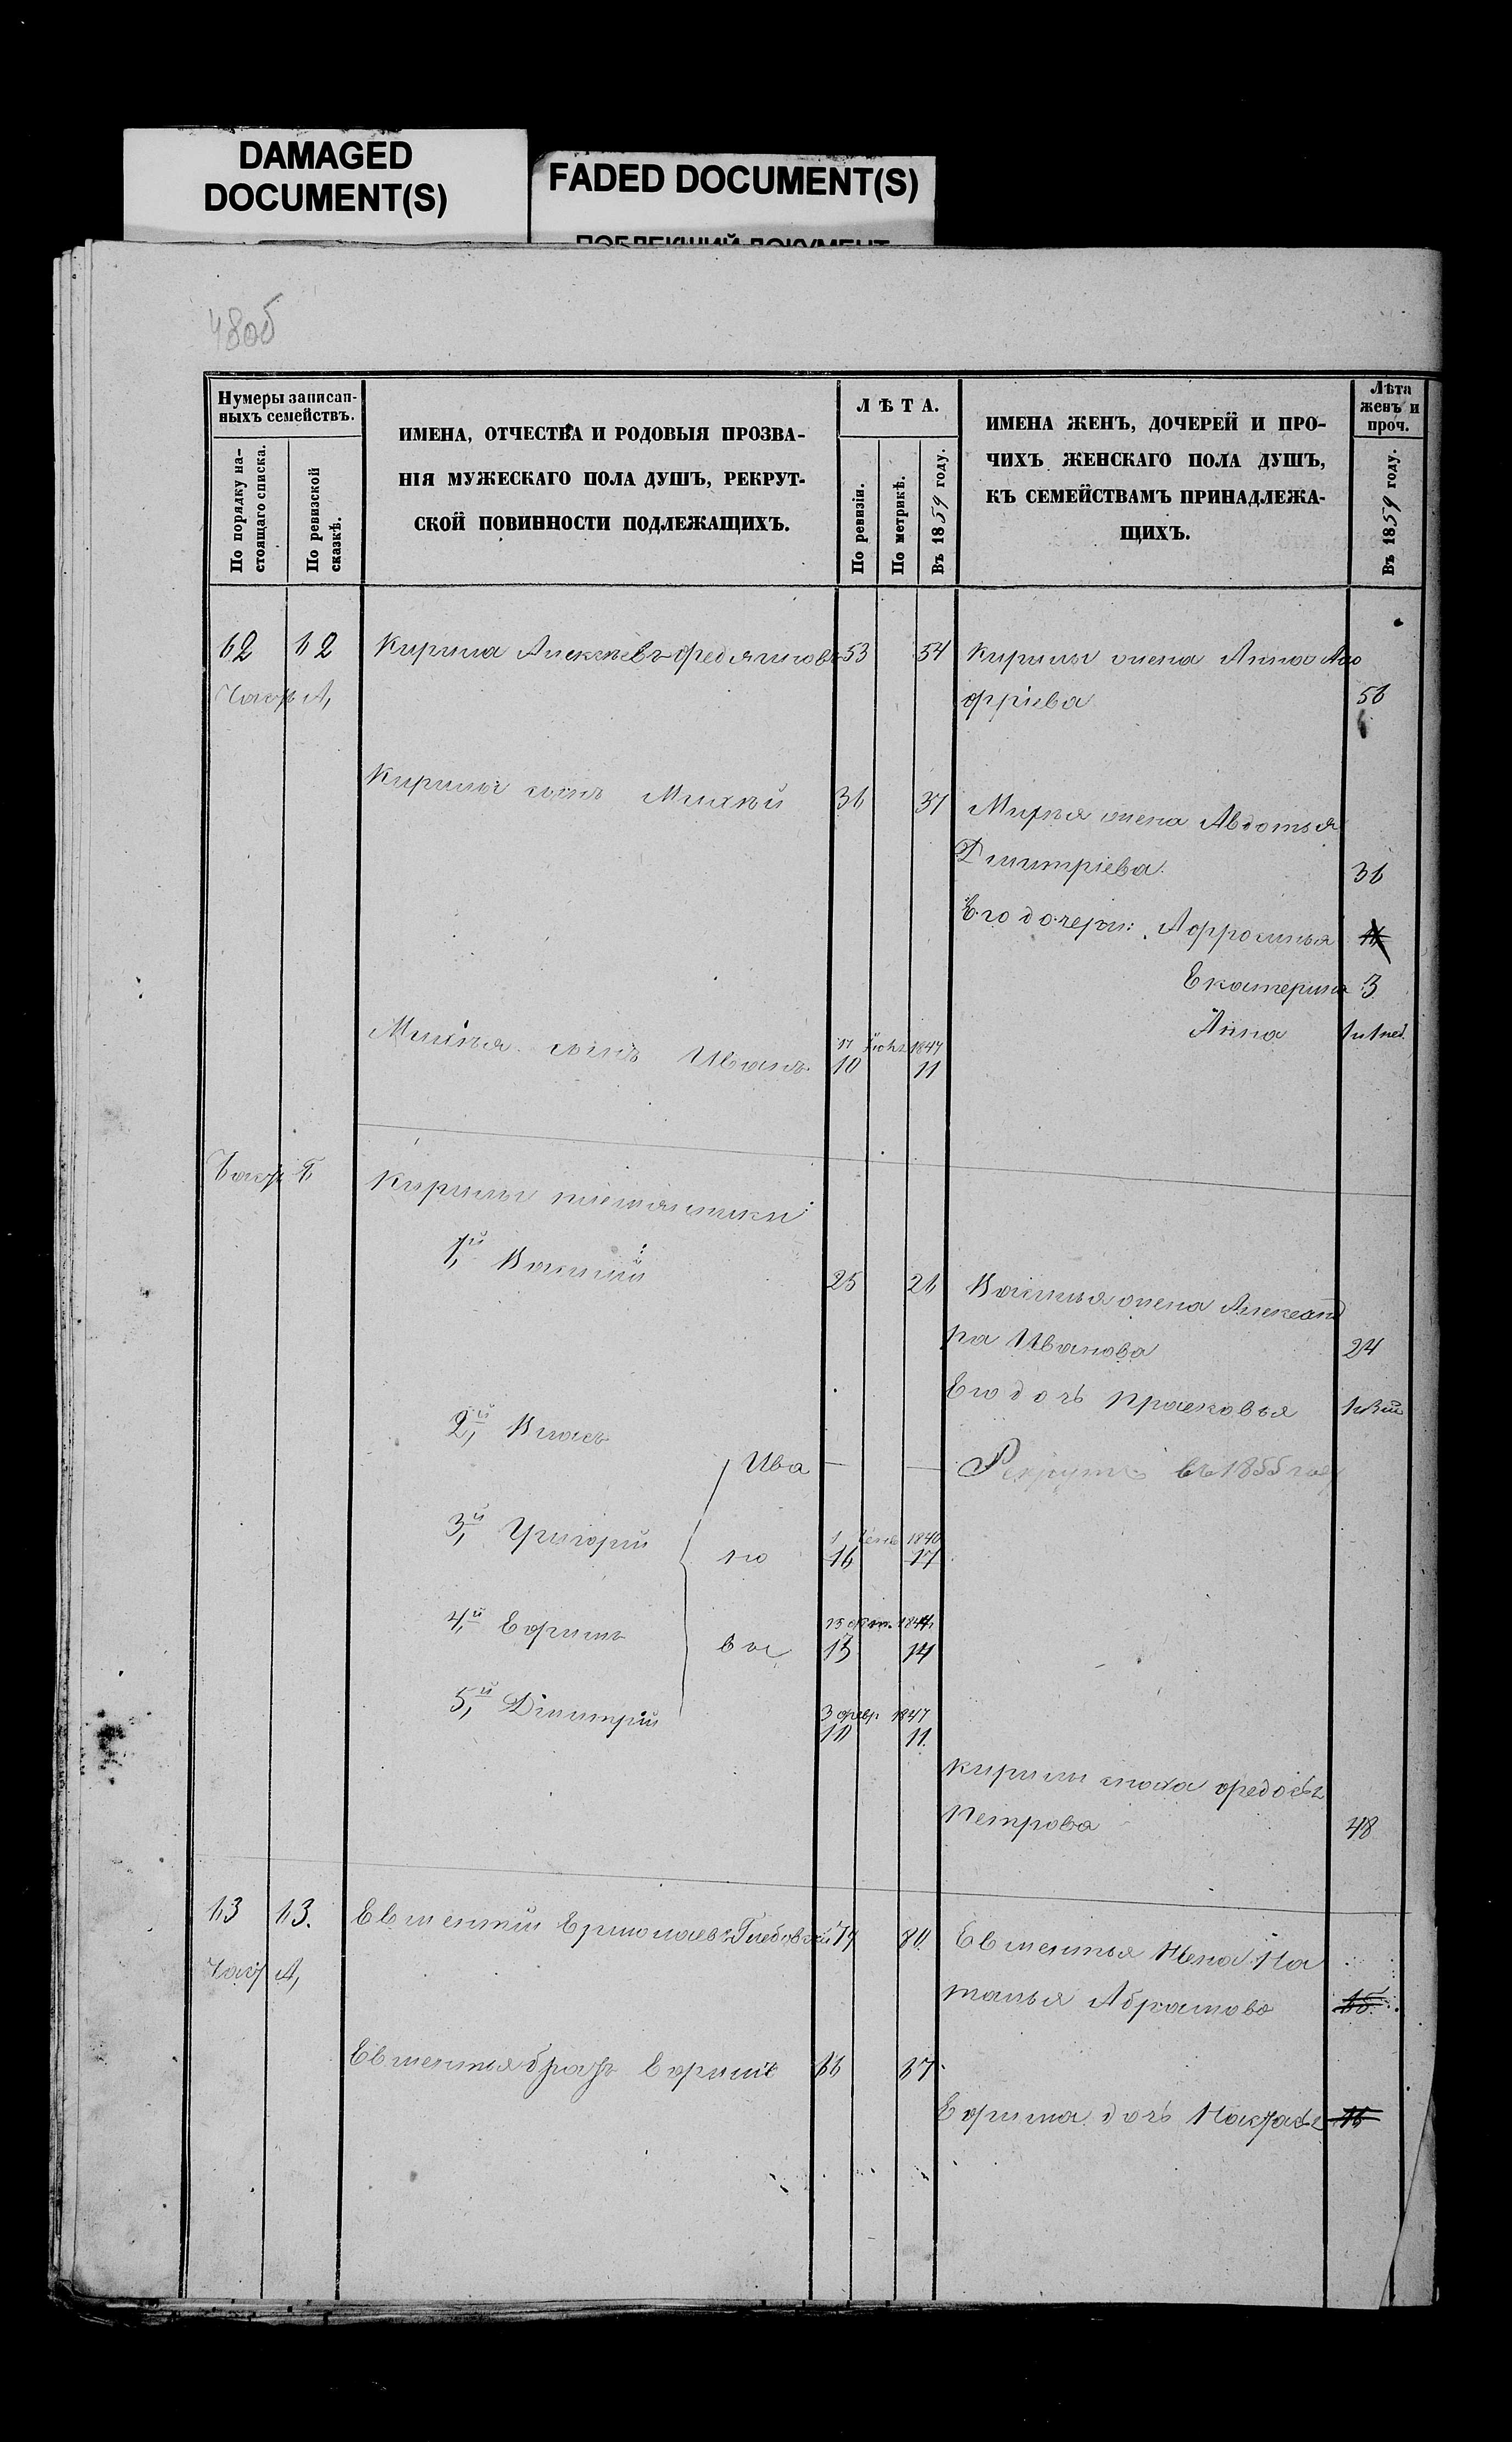 DAMAGED
DOCUMENT(S)
FADED DOCUMENT(S)
ПОБЛЕКШИЙ ДОКУМЕНТ
48об
Нумеры записан-
ныхъ семействъ.
По порядку на-
стоящаго списка.
По ревизской
сказкѣ.
ИМЕНА, ОТЧЕСТВА И РОДОВЫЯ ПРОЗВА-
НІЯ МУЖЕСКАГО ПОЛА ДУШЪ, РЕКРУТ-
СКОЙ ПОВИННОСТИ ПОДЛЕЖАЩИХЪ.
ЛѢТА.
По ревизіи.
По метрикѣ.
Въ 1859 году.
ИМЕНА ЖЕНЪ, ДОЧЕРЕЙ И ПРО-
ЧИХЪ ЖЕНСКАГО ПОЛА ДУШЪ,
КЪ СЕМЕЙСТВАМЪ ПРИНАДЛЕЖА-
ЩИХЪ.
Лѣта
женъ и
проч.
Въ 1859 году.
62 62 Кирила Алексѣевъ 53 54 Кирилы жена Анна Ано
фріева 56
А,
Кирилы сынъ Михѣй 36 37 Михѣя жена Авдотья
Дмитріева. 36
Его дочери: Афросинья
Екатерина 3
Анна
Михѣя сынъ Иванъ 10 1847 11
Б
Кирилы племянники:
1й, Василій 25 26 Василья жена Александ
ра Иванова 24
Его дочь Прасковья
2й, Власъ
Ива — — Рекрутъ въ 1855 году
3й, Григорій но 1 1840 16 17
4й, Ефимъ вы 13 14
5й, Димитрій 3 февр. 1847 10 11.
Кирилы сноха Федосья
Петрова 48
63 63. Евментій Ермолаевъ 79 80 Евментья жена На
талья Абрамова 65
А,
Евментья братъ Ефимъ 66 67
Ефима дочь